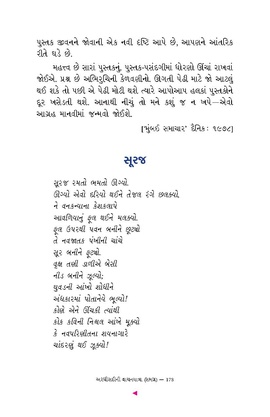 પુસ્તક જીવનને જોવાની એક નવી દૃષ્ટિ આપે છે, આપણને આંતરિક
રીતે ઘડે છે.
મહત્ત્વ છે સારાં પુસ્તકનું. પુસ્તક-પસંદગીમાં ધોરણો ઊંચાં રાખવાં
જોઈએ. પ્રશ્ન છે અભિરુચિની કેળવણીનો. ઊગતી પેઢી માટે જો આટલું
થઈ શકે તો પછી એ પેઢી મોટી થશે ત્યારે આપોઆપ હલકાં પુસ્તકોને
દૂર ખસેડતી થશે. આનાથી નીચું તો મને કશું જ ન ખપે—એવો
આગ્રહ માનવીમાં જન્મવો જોઈશે.
['મુંબઈ સમાચાર' દૈનિક: ૧૯૭૮]
સૂરજ
સૂરજ રમતો ભમતો ઊગ્યો.
ઊગ્યો એવો દરિયો થઈને તેજલ રંગે છલક્યો.
ને વનકન્યાના કેશકલાપે
આવળિયાનું ફૂલ થઈને મલક્યો.
ફૂલ ઉપરથી પવન બનીને છૂટ્યો
તે નવજાતક પંખીની ચાંચે
સૂર બનીને ફૂટ્યો.
વૃક્ષ તણી ડાળીએ બેસી
નીડ બનીને ઝૂલ્યો;
ઘુવડની આંખો શોધીને
અંધકારમાં પોતાનેયે ભૂલ્યો!
કોણે એને ઊંચકી ત્યાંથી
કોક કવિની નિશ્ચલ આંખે મૂક્યો
કે નવપરિણીતના શયનાગારે
ચાંદરણું થઈ ઝૂક્યો!
અરધીસદીની વાચનયાત્રા (ભાગ) — 178